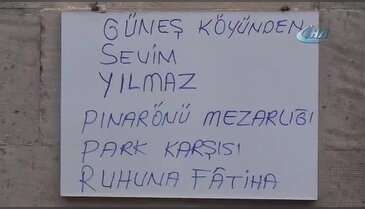 GÜNEŞ KÖYÜNDEN
SEVİM
YILMAZ
PINARÖNÜ MEZARLIĞI
PARK KARŞISI
RUHUNA FÂTİHA